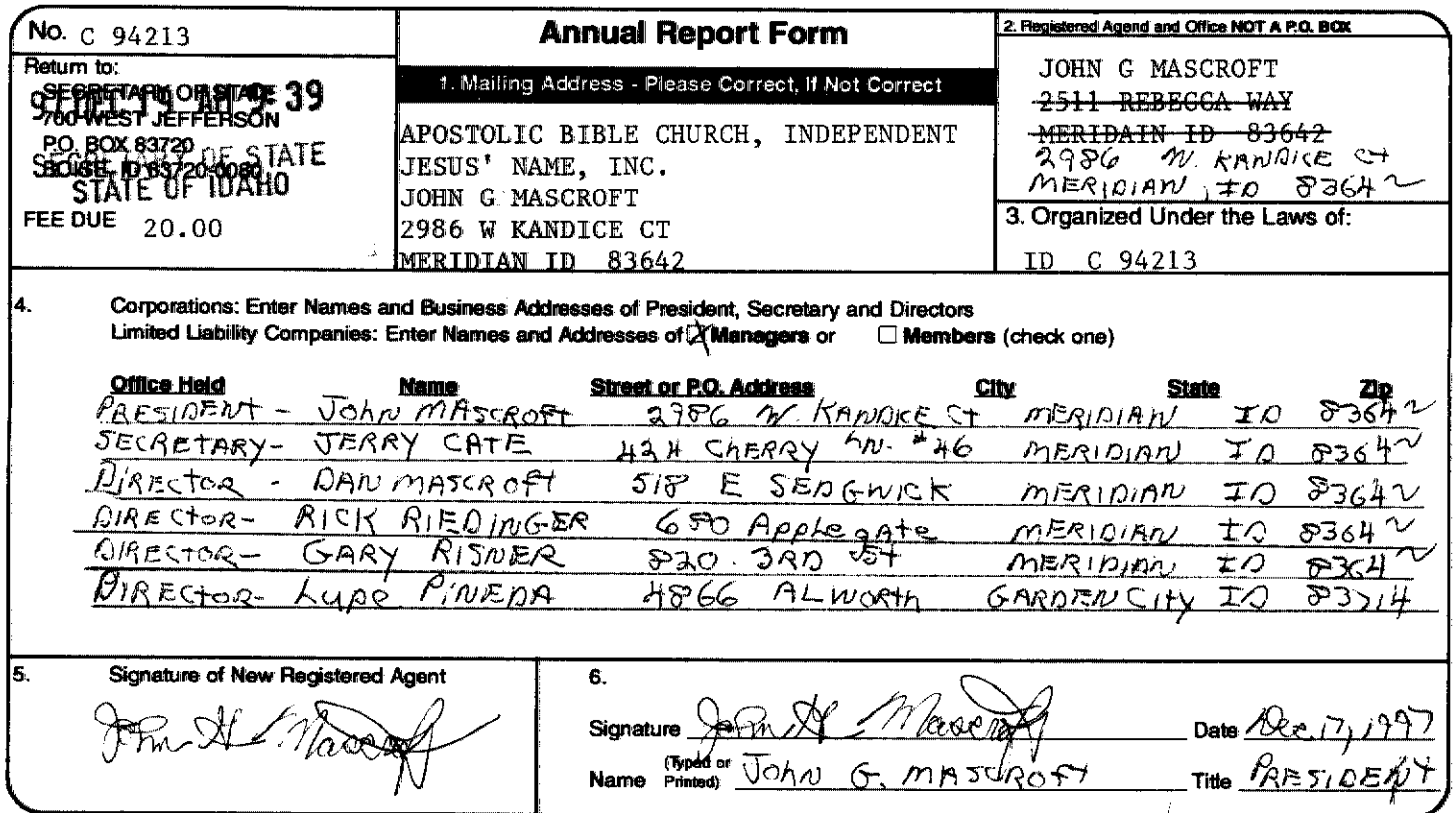 No. C 94213
Return to:
SECRETARY OF STATE
97 DEC 19 AM 9:39
700 WEST JEFFERSON
P.O. BOX 83720
SECRETARY OF STATE
BOISE, ID 83720-0080
STATE OF IDAHO
FEE DUE 20.00
Annual Report Form
1. Mailing Address - Please Correct, If Not Correct
APOSTOLIC BIBLE CHURCH, INDEPENDENT
JESUS' NAME, INC.
JOHN G MASCROFT
2986 W KANDICE CT
MERIDIAN ID 83642
2. Registered Agend and Office NOT A P.O. BOX
JOHN G MASCROFT
2511 REBECCA WAY
MERIDAIN ID 83642
2986 W. KANDICE CT
MERIDIAN, ID 83642
3. Organized Under the Laws of:
ID C 94213
4. Corporations: Enter Names and Business Addresses of President, Secretary and Directors
Limited Liability Companies: Enter Names and Addresses of ☒ Managers or ☐ Members (check one)
Office Held Name Street or P.O. Address City State Zip
PRESIDENT - JOHN MASCROFT 2986 W. KANDICE CT MERIDIAN ID 83642
SECRETARY- JERRY CATE 424 CHERRY LN. #46 MERIDIAN ID 83642
DIRECTOR - DAN MASCROFT 518 E SEDGWICK MERIDIAN ID 83642
DIRECTOR- RICK RIEDINGER 680 Applegate MERIDIAN ID 83642
DIRECTOR- GARY RISNER 820. 3RD ST MERIDIAN ID 83642
DIRECTOR- Lupe PINEDA 4866 ALWORTH GARDEN CITY ID 83714
5. Signature of New Registered Agent
John G Mascroft
6.
Signature John G Mascroft Date Dec 17, 1997
Name (Typed or Printed) JOHN G. MASCROFT Title PRESIDENT